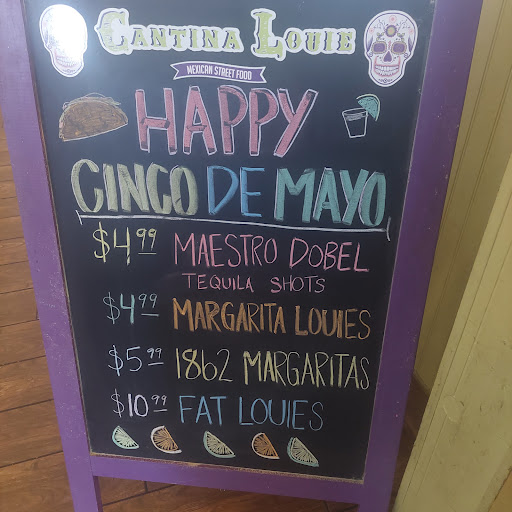 CANTINA LOUIE
MEXICAN STREET FOOD
HAPPY
CINCO DE MAYO
$4.99 MAESTRO DOBEL
TEQUILA SHOTS
$4.99 MARGARITA LOUIES
$5.99 1862 MARGARITAS
$10.99 FAT LOUIES